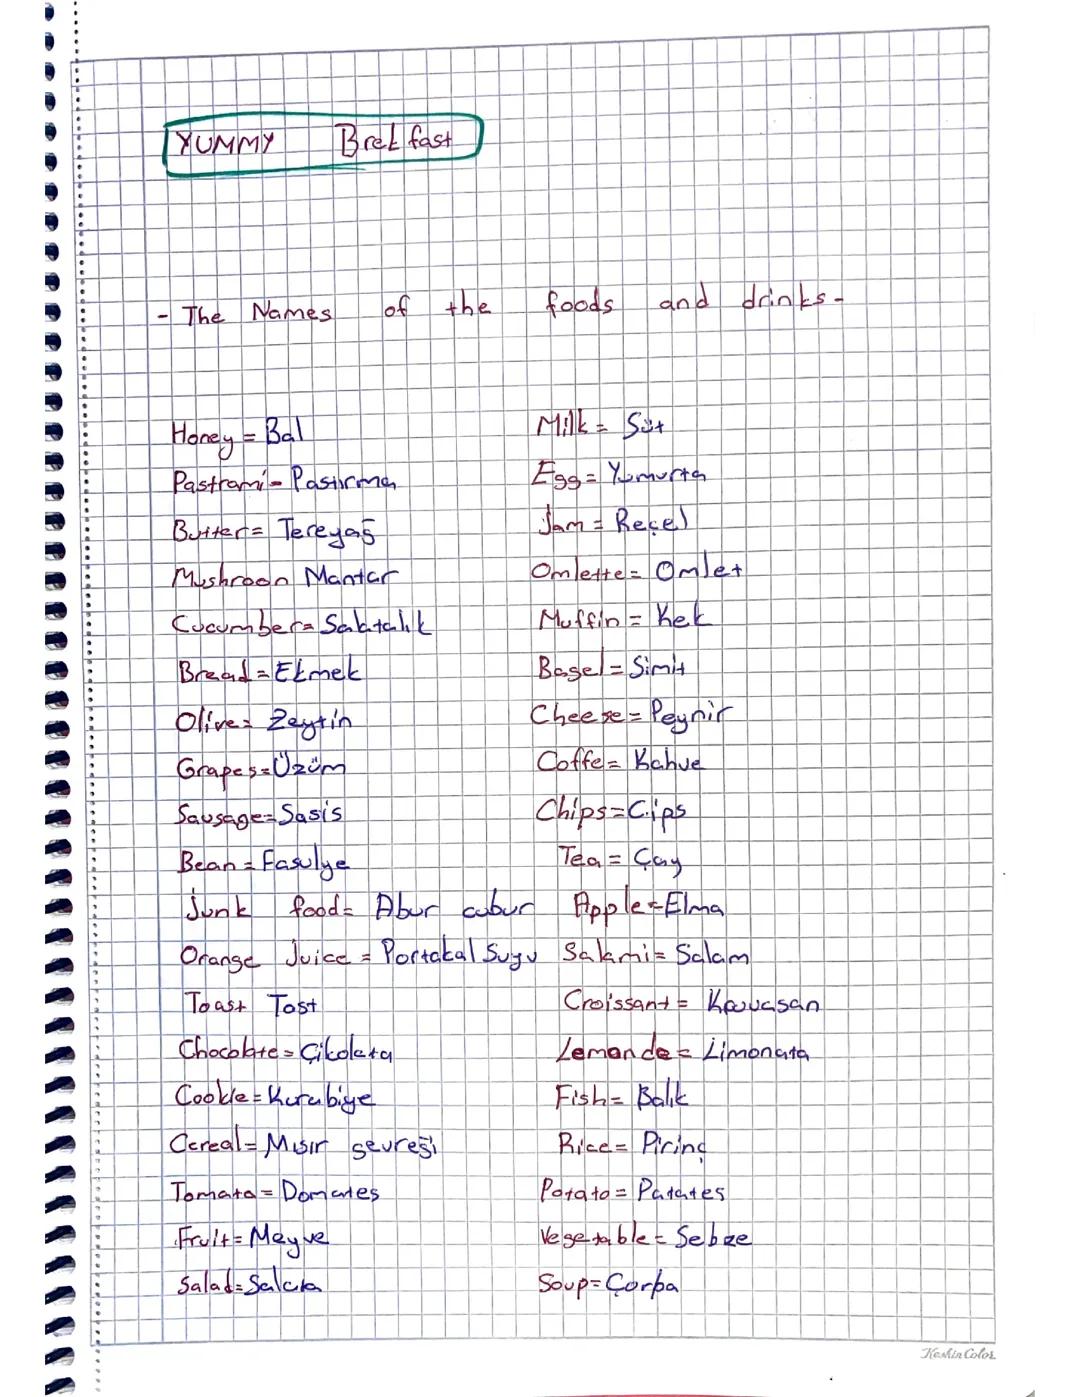 YUMMY Brekfast
- The Names of the foods and drinks -
Honey = Bal
Pastrami - Pastırma
Butter = Tereyağ
Mushroon Mantar
Cucumber = Salatalık
Bread = Ekmek
Olive = Zeytin
Grapes = Üzüm
Sausage = Sasis
Bean = Fasulye
junk food = Abur cubur
Orange Juice = Portakal Suyu
Toast Tost
Chocolate = Çikolata
Cookie = Kurabiye
Cereal = Mısır gevreği
Tomato = Domates
Fruit = Meyve
Salad = Salata
Milk = Süt
Egg = Yumurta
Jam = Reçel
Omlette = Omlet
Muffin = Kek
Bagel = Simit
Cheese = Peynir
Coffe = Kahve
Chips = Cips
Tea = Çay
Apple = Elma
Salami = Salam
Croissant = Kruvasan
Lemonade = Limonata
Fish = Balık
Rice = Pirinç
Potato = Patates
Vegetable = Sebze
Soup = Çorba
KeskinColor